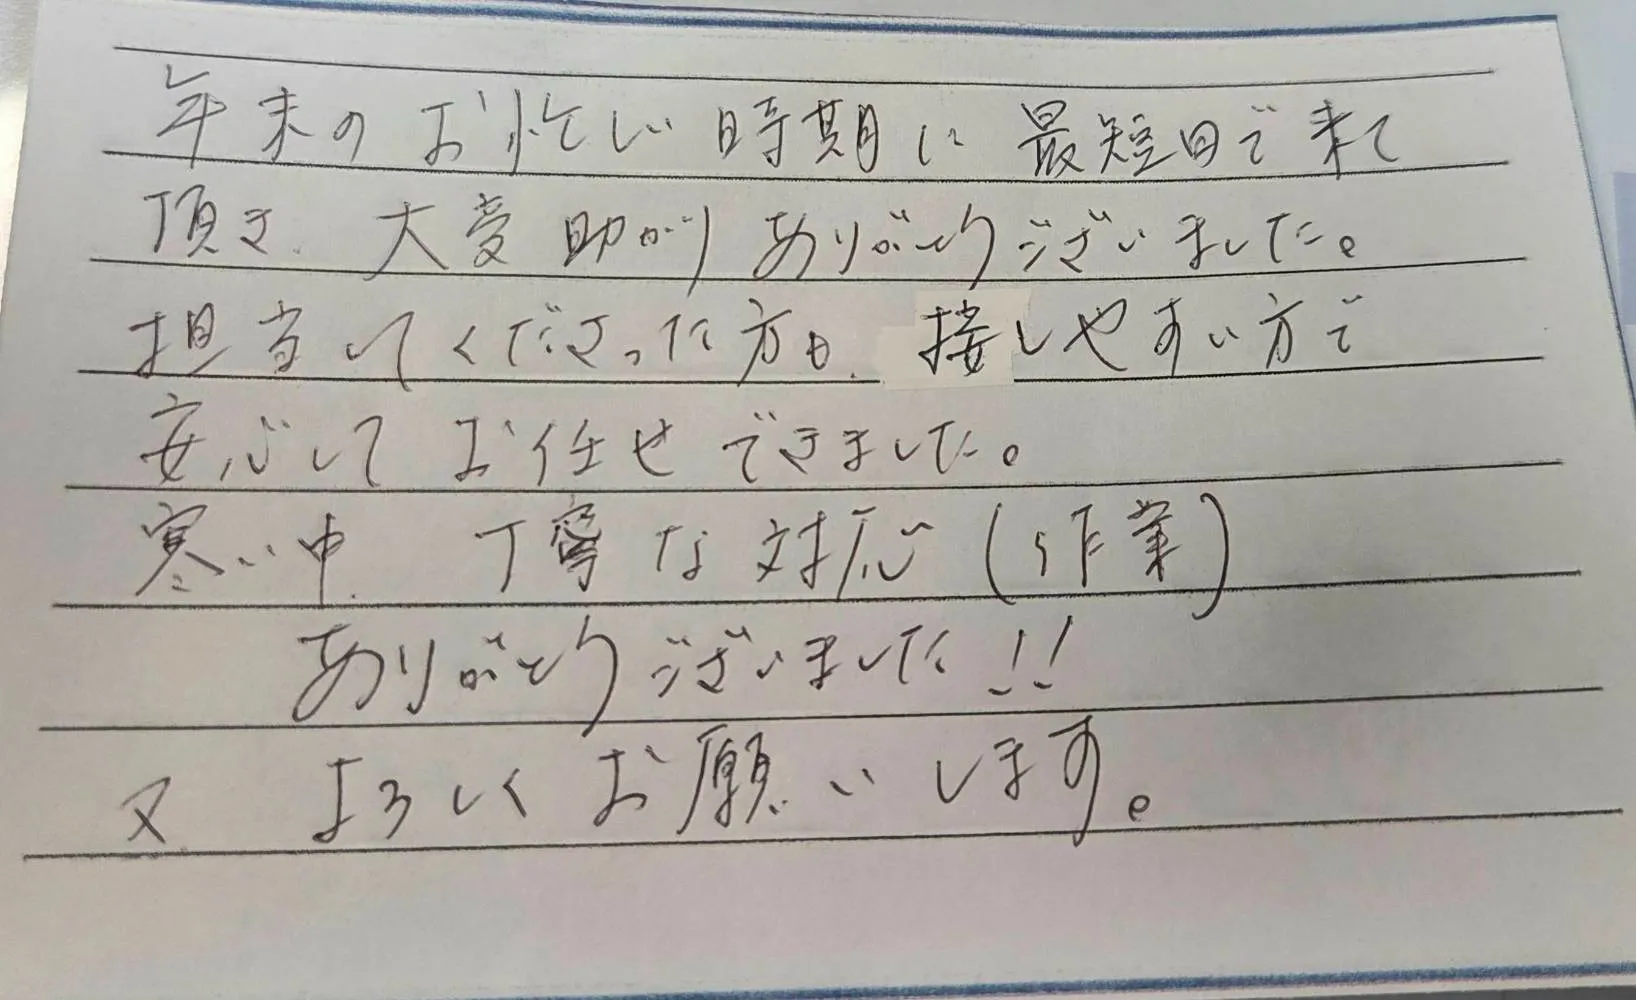 年末のお忙しい時期に最短日で来て
頂き、大変助かりありがとうございました。
担当してくださった方も、接しやすい方で
安心してお任せできました。
寒い中、丁寧な対応（作業）
ありがとうございました!!
又、よろしくお願いします。